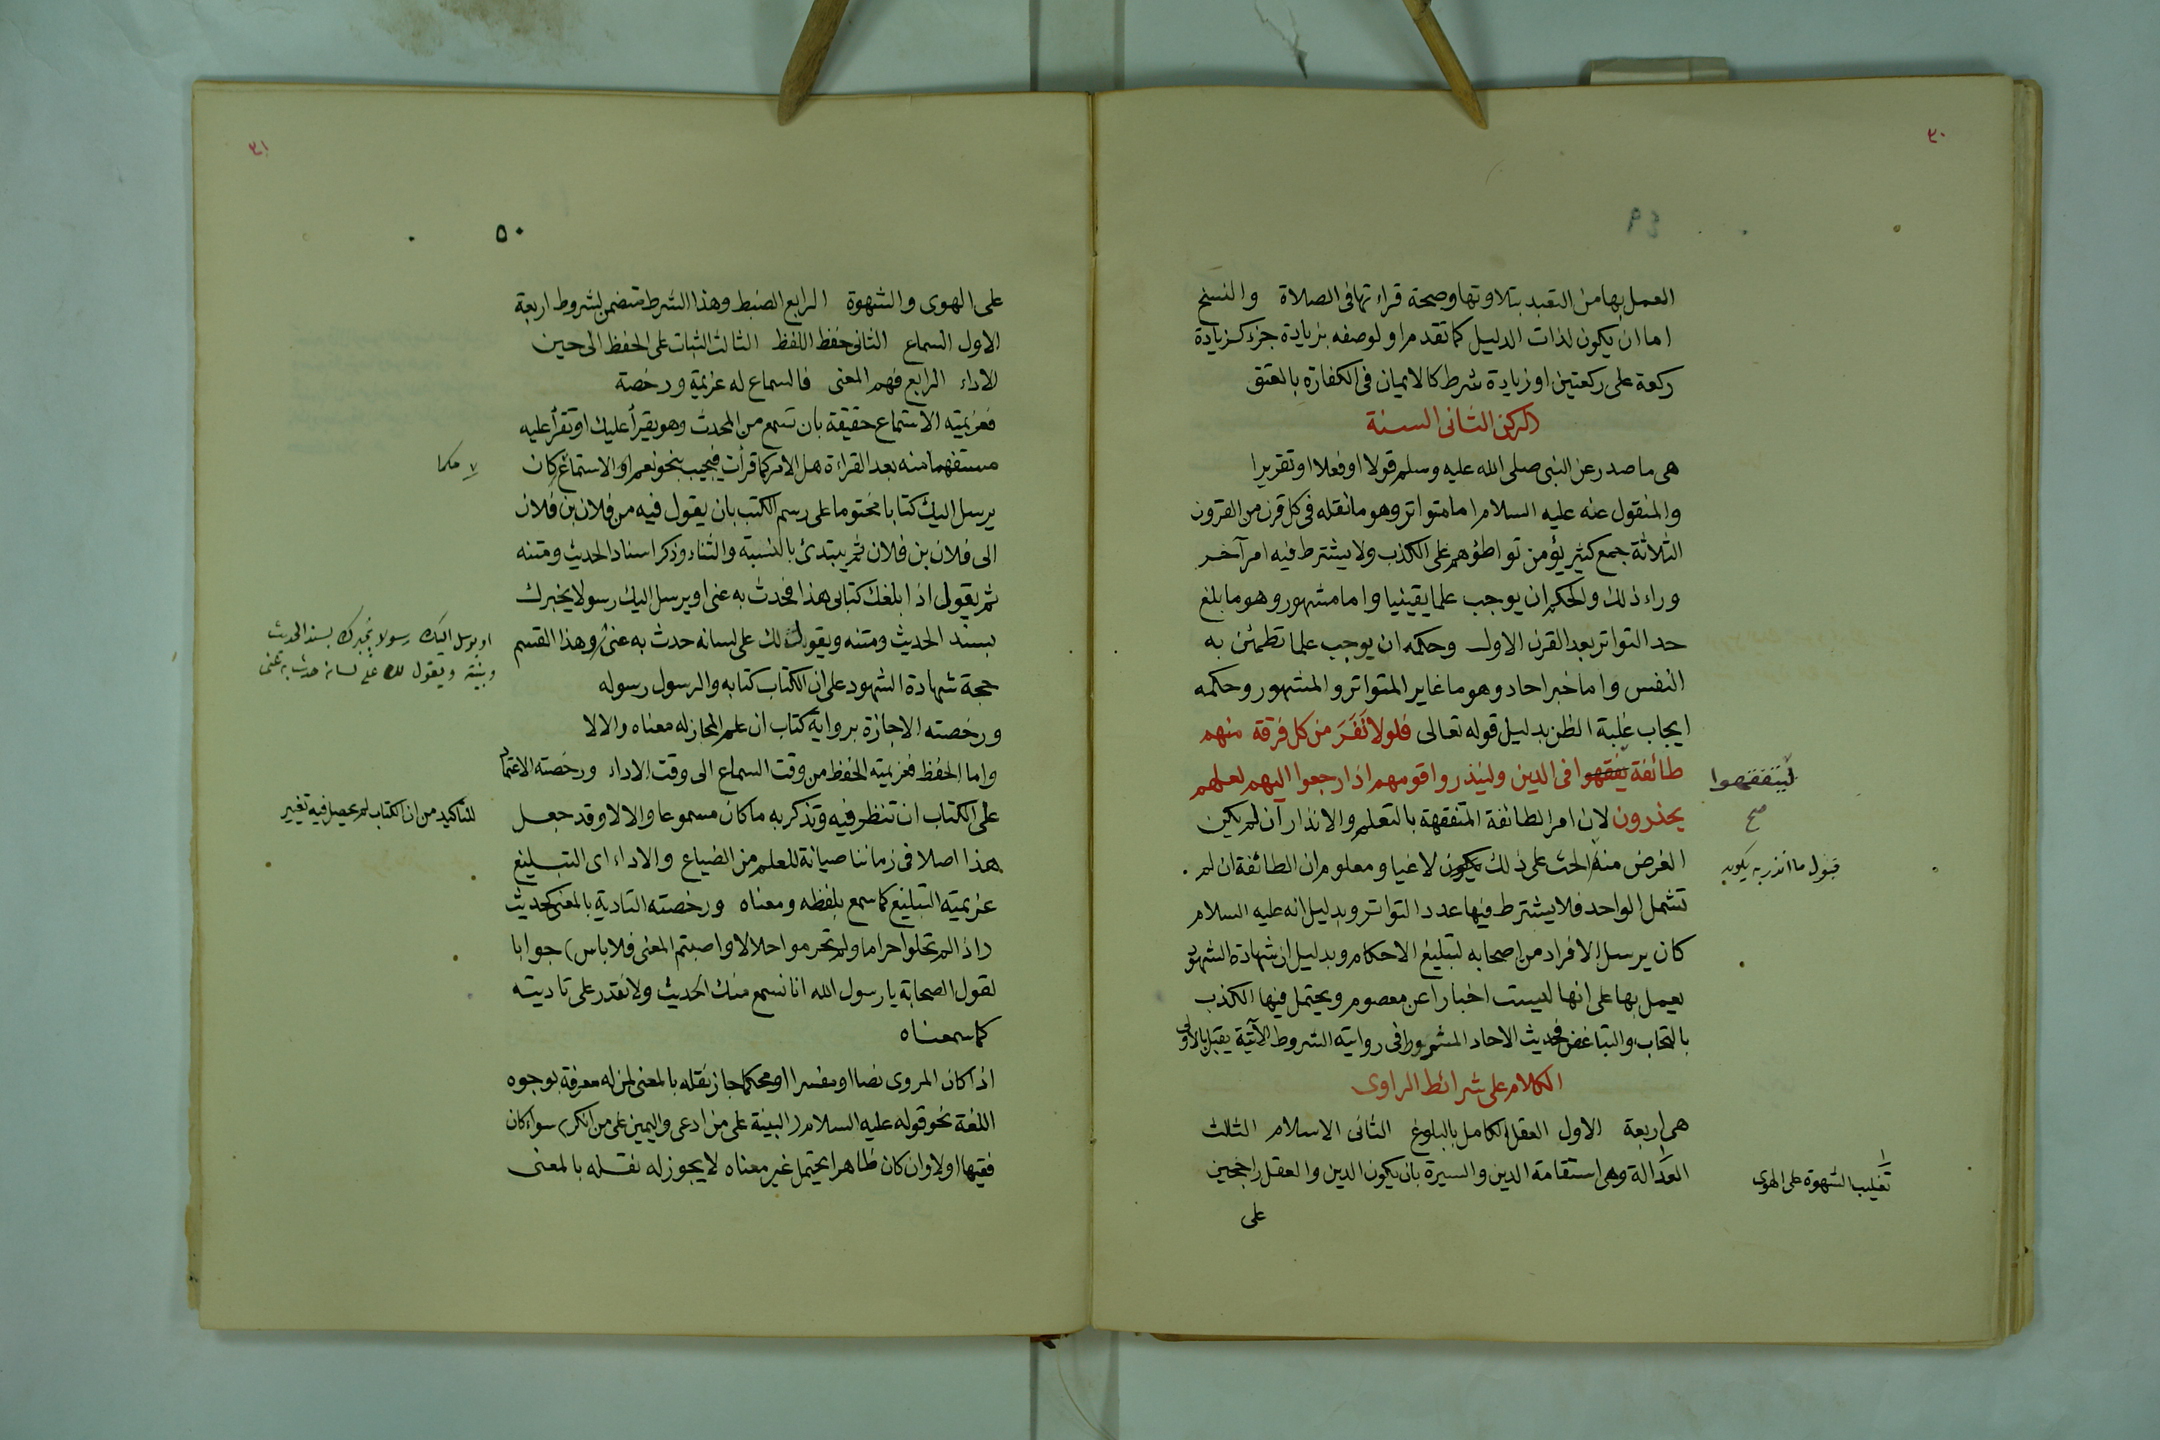 ٣٠
٤٩
العمل بها من التعبد بتلاوتها وصحة قراءتها فى الصلاة والنسخ
اما ان يكون لذات الدليل كما تقدم او لوصفه بزيادة جزء كزيادة
ركعة على ركعتين او زيادة شرط كالايمان فى الكفارة بالعتق
الركن الثانى السنة
هى ما صدر عن النبى صلى الله عليه وسلم قولا او فعلا او تقريرا
والمنقول عنه عليه السلام اما متواتر وهو ما نقله فى كل قرن من القرون
الثلاثة جمع كثير يؤمن تواطؤهم على الكذب ولا يشترط فيه امر آخر
وراء ذلك والحكم ان يوجب علما يقينيا واما مشهور وهو ما بلغ
حد التواتر بعد القرن الاول وحكمه ان يوجب علما تطمئن به
النفس واما خبر احاد وهو ما غاير المتواتر والمشهور وحكمه
ايجاب غلبة الظن بدليل قوله تعالى فلولا نَفَرَ من كل فرقة منهم
طائفة يفقهوا فى الدين ولينذروا قومهم اذا رجعوا اليهم لعلهم
ليتفقهوا
صح
يحذرون لان امر الطائفة المتفقهة بالتعلم والانذار ان لم يكن
الغرض منه الحث على ذلك يكون لاغيا ومعلوم ان الطائفة ان لم
قبول ما انذر به يكون
تشمل الواحد فلا يشترط فيها عدد التواتر وبدليل انه عليه السلام
كان يرسل الافراد من اصحابه لتبليغ الاحكام وبدليل ان شهادة الشهود
يعمل بها على انها ليست اخبارا عن معصوم ويحتمل فيها الكذب
بالتحاب والتباغض فحديث الاحاد المشهور فى روايته الشروط الآتية يقبل بالاولى
الكلام على شرائط الراوى
هى اربعة الاول العقل الكامل بالبلوغ الثانى الاسلام الثالث
العدالة وهى استقامة الدين والسيرة بان يكون الدين والعقل راجحين
تغليب الشهوة على الهوى
على
٣١
٥٠
على الهوى والشهوة الرابع الضبط وهذا الشرط متضمن لشروط اربعة
الاول السماع الثانى حفظ اللفظ الثالث الثبات على الحفظ الى حين
الاداء الرابع فهم المعنى فالسماع له عزيمة ورخصة
فعزيمته الاستماع حقيقة بان تسمع من المحدث وهو يقرأ عليك او تقرأ عليه
مستفهما منه بعد القراءة هل الامر كما قرأت فيجيب بنحو نعم او الاستماع كان
حكما
يرسل اليك كتابا مختوما على رسم الكتب بان يقول فيه من فلان بن فلان
الى فلان بن فلان ثم يبتدئ بالنسبة والثناء وذكر اسناد الحديث ومتنه
ثم يقول اذا بلغك كتابى هذا فحدث به عنى او يرسل اليك رسولا يخبرك
بسند الحديث ومتنه ويقول لك على لسانه حدث به عنى وهذا القسم
او يرسل اليك رسولا يخبرك بسند الحديث
ومتنه ويقول لك على لسانه حدث به عنى
حجة شهادة الشهود على ان الكتاب كتابه والرسول رسوله
ورخصته الاجازة برواية كتاب ان علم المجاز له معناه والا لا
واما الحفظ فعزيمته الحفظ من وقت السماع الى وقت الاداء ورخصته الاعتماد
على الكتاب ان تنظر فيه وتذكر به ما كان مسموعا والا لا وقد جعل
للتأكيد من ان الكتاب لم يحصل فيه تغيير
هذا اصلا فى زماننا صيانة للعلم من الضياع والاداء اى التبليغ
عزيمته التبليغ كما سمع بلفظه ومعناه ورخصته التادية بالمعنى لحديث
(اذا لم تحلوا حراما ولم تحرموا حلالا واصبتم المعنى فلا باس) جوابا
لقول الصحابة يا رسول الله انا نسمع منك الحديث ولا نقدر على تاديته
كما سمعناه
اذا كان المروى نصا او مفسرا او محكما جاز نقله بالمعنى لمن له معرفة بوجوه
اللغة نحو قوله عليه السلام (البينة على من ادعى واليمين على من انكر) سواء كان
فقيها او لا وان كان ظاهرا يحتمل غير معناه لا يجوز له نقله بالمعنى